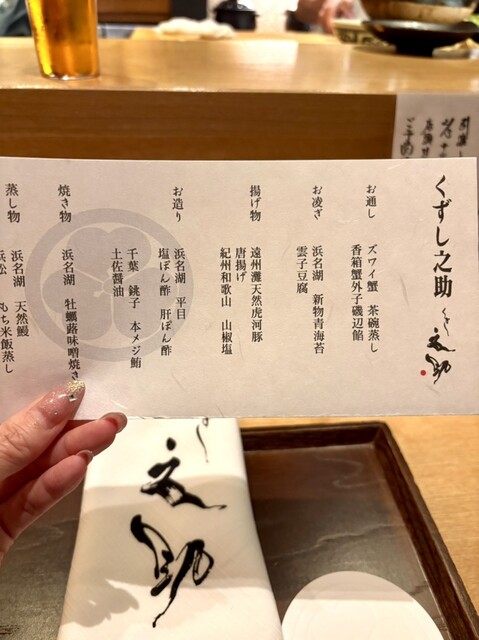 くずし之助
くずし
之助
お通し
ズワイ蟹 茶碗蒸し
香箱蟹外子磯辺餡
お凌ぎ
浜名湖 新物青海苔
雲子豆腐
揚げ物
遠州灘天然虎河豚
唐揚げ
紀州和歌山 山椒塩
お造り
浜名湖 平目
塩ぽん酢 肝ぽん酢
千葉 銚子 本メジ鮪
土佐醤油
焼き物
浜名湖 牡蠣蕗味噌焼き
蒸し物
浜名湖 天然鰻
浜松 もち米飯蒸し
之助